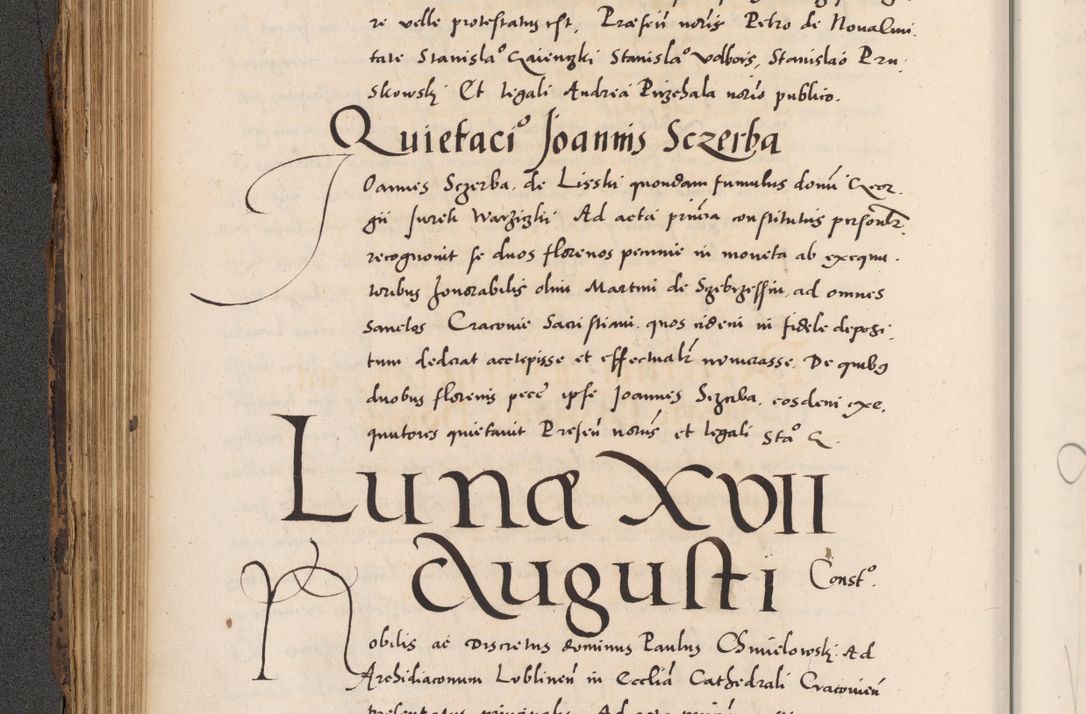 re velle protestatus est, Præseñ noris Petro de Noualmi.
tate Stanisla° Stanisla° Stanislao Pru.
skowskj Et legali Andrea norio publico.
Quietaci° Joannis Sczerba
Joannes Sczerba. de Lisski quondam famulus domi Geor.
gii Jurek Ad acta pñcia constitutus personlr.
recognouit se duos florenos pecunie in moneta ab exequu.
toribus honorabilis olim Martini de Sczebrzessin, ad omnes
sanctos Cracouie Sacristiani. quos eidem in fidele deposi.
tum dederat accepisse et effectualr numerasse. De quibus
duobus florenis pece ipse Joannes Sczerba. eosdem exe.
quutores quietauit Preseñ noris et legali Sta° G.
Lunæ XVII
Augusti Const°.
Nobilis ac Discretus dominus Paulus Chmielowskj. Ad
Archidiaconum Lublineñ in Ecclia Cathedrali Cracouieñ
presentatus principalis Ad acta